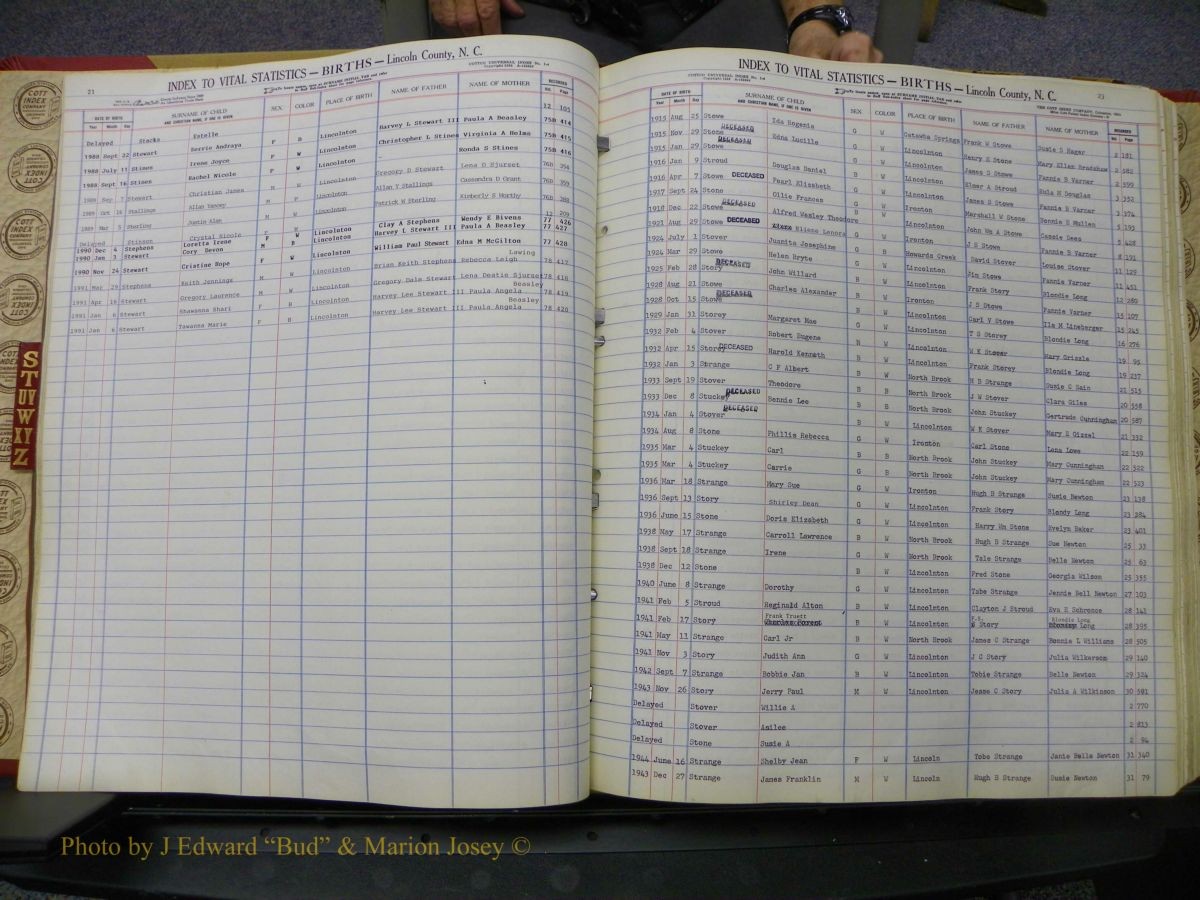 21
INDEX TO VITAL STATISTICS — BIRTHS — Lincoln County, N. C.
DATE OF BIRTH SURNAME OF CHILD SEX COLOR PLACE OF BIRTH NAME OF FATHER NAME OF MOTHER RECORDED
Year Month Day AND CHRISTIAN NAME, IF ONE IS GIVEN Vol. Page
Delayed Stacks Estelle 12 105
1988 Sept 22 Stewart Berrie Andraya F B Lincolnton Harvey L Stewart III Paula A Beasley 75B 414
1988 July 11 Stines Irene Joyce F W Lincolnton Christopher L Stines Virginia A Helms 75B 415
1988 Sept 16 Stines Rachel Nicole F W Lincolnton Ronda S Stines 75B 416
1989 Sep 7 Stewart Christian James M W Lincolnton Gregory D Stewart Lena D Sjurset 76B
1989 Oct Stallings Allan Yancey M Lincolnton Allan Y Stallings Cassondra D Grant 76B 359
1989 Mar 5 Sterling Justin Alan M W Lincolnton Patrick W Sterling Kimberly S Worthy 76B 388
Delayed Stinson Crystal Nicole 12 209
1990 Dec 4 Stephens Loretta Irene F W Lincolnton Clay A Stephens Wendy E Bivens 77 426
1990 Jan 3 Stewart Cory Devon M B Lincolnton Harvey L Stewart III Paula A Beasley 77 427
1990 Nov 24 Stewart Cristine Hope F W Lincolnton William Paul Stewart Edna M McGilton 77 428
1991 Mar 29 Stephens Keith Jennings M W Lincolnton Brian Keith Stephens Rebecca Leigh Lawing 78 417
1991 Apr 16 Stewart Gregory Laurence M W Lincolnton Gregory Dale Stewart Lena Deatie Sjurset 78 418
1991 Jan 6 Stewart Shawanna Shari F B Lincolnton Harvey Lee Stewart III Paula Angela Beasley 78 419
1991 Jan 6 Stewart Tawanna Marie F B Lincolnton Harvey Lee Stewart III Paula Angela Beasley 78 420
S
T
U
V
W
X
Y
Z
COTT INDEX COMPANY
23
INDEX TO VITAL STATISTICS — BIRTHS — Lincoln County, N. C.
DATE OF BIRTH SURNAME OF CHILD SEX COLOR PLACE OF BIRTH NAME OF FATHER NAME OF MOTHER RECORDED
Year Month Day AND CHRISTIAN NAME, IF ONE IS GIVEN Vol. Page
1915 Aug 25 Stowe Ida Eugenia G W Catawba Springs Frank W Stowe Susie S Hager 2 181
1915 Nov 29 Stone DECEASED Edna Lucille G W Lincolnton Henry E Stone Mary Ellen Bradshaw 2 582
1915 Jan 29 Stowe DECEASED W Lincolnton James S Stowe Fannie B Varner 2 599
1916 Jan 9 Stroud Douglas Daniel B W Lincolnton Elmer A Stroud Eula H Douglas 3 352
1916 Apr 7 Stowe DECEASED Pearl Elizabeth G W Ironton James S Stowe Fannie B Varner 3 374
1917 Sept 24 Stone Ollie Frances G W Marshall W Stone Bonnie S Mullen 5 195
1918 Dec 22 Stowe DECEASED Alfred Wesley Theodore W John Wm A Stowe Cassie Sees 5 428
1921 Aug 29 Stowe DECEASED Elisse Lenora G W Ironton J S Stowe Fannie B Varner 8 191
1924 July 1 Stover Juanita Josephine G W Howards Creek David Stover Louise Stover 11 129
1924 Mar 29 Stowe Helen Bryte G W Lincolnton Jim Stowe Fannie Varner 11 451
1925 Feb 28 Story DECEASED John Willard B W Lincolnton Frank Story Blondie Long 12 280
1928 Aug 21 Stowe Charles Alexander B W Ironton J S Stowe Fannie Varner 15 107
1928 Oct 15 Stowe DECEASED W Lincolnton Carl V Stowe Ila M Lineberger 15 245
1929 Jan 31 Storey Margaret Mae G W Lincolnton T G Storey Blondie Long 16 276
1932 Feb 4 Stover Robert Eugene W Lincolnton W K Stover Mary Grizzle 19 95
1932 Apr 15 Storey DECEASED Harold Kenneth B W Lincolnton Frank Storey Blondie Long 19 237
1932 Jan 3 Strange C F Albert B W North Brook H B Strange Susie C Sain 21 515
1933 Sept 19 Stover Theodore B W North Brook J W Stover Clara Giles 20 558
1933 Dec 8 Stuckey DECEASED Bennie Lee B B North Brook John Stuckey Gertrude Cunningham 20 587
1934 Jan 4 Stover DECEASED B W Lincolnton W K Stover Mary E Gizzel 21 332
1934 Aug 8 Stone Phillis Rebecca G W Ironton Carl Stone Lena Lowe 22 159
1935 Mar 4 Stuckey Carl B B North Brook John Stuckey Mary Cunningham 22 522
1935 Mar 4 Stuckey Carrie G B North Brook John Stuckey Mary Cunningham 22 523
1936 Mar 18 Strange Mary Sue G W Ironton Hugh B Strange Susie Newton 23 138
1936 Sept 13 Story Shirley Dean G W Lincolnton Frank Story Blondy Long 23 284
1936 June 15 Stone Doris Elizabeth G W Lincolnton Harry Wm Stone Evelyn Baker 23 401
1938 May 17 Strange Carroll Lawrence B W North Brook Hugh B Strange Sue Newton 25 33
1938 Sept 18 Strange Irene G W North Brook Tale Strange Belle Newton 25 63
1938 Dec 12 Stone B W Lincolnton Fred Stone Georgia Wilson 25 355
1940 June 8 Strange Dorothy G W Lincolnton Tobe Strange Jennie Bell Newton 27 103
1941 Feb 5 Stroud Reginald Alton B W Lincolnton Clayton J Stroud Eva E Schronce 28 141
1941 Feb 17 Story Frank Truett B W Lincolnton F.R. Story Blondie Long 28 395
1941 May 11 Strange Carl Jr B W North Brook James C Strange Bonnie L Williams 28 505
1941 Nov 3 Story Judith Ann G W Lincolnton J C Story Julia Wilkerson 29 140
1942 Sept 7 Strange Bobbie Jan B W Lincolnton Tobie Strange Belle Newton 29 324
1943 Nov 26 Story Jerry Paul M W Lincolnton Jesse C Story Julia A Wilkinson 30 591
Delayed Stover Willie A 2 770
Delayed Stover Asilee 2 813
Delayed Stone Susie A 2 94
1944 June 16 Strange Shelby Jean F W Lincoln Tobe Strange Janie Belle Newton 31 340
1943 Dec 27 Strange James Franklin M W Lincoln Hugh B Strange Susie Newton 31 79
Photo by J Edward “Bud” & Marion Josey ©